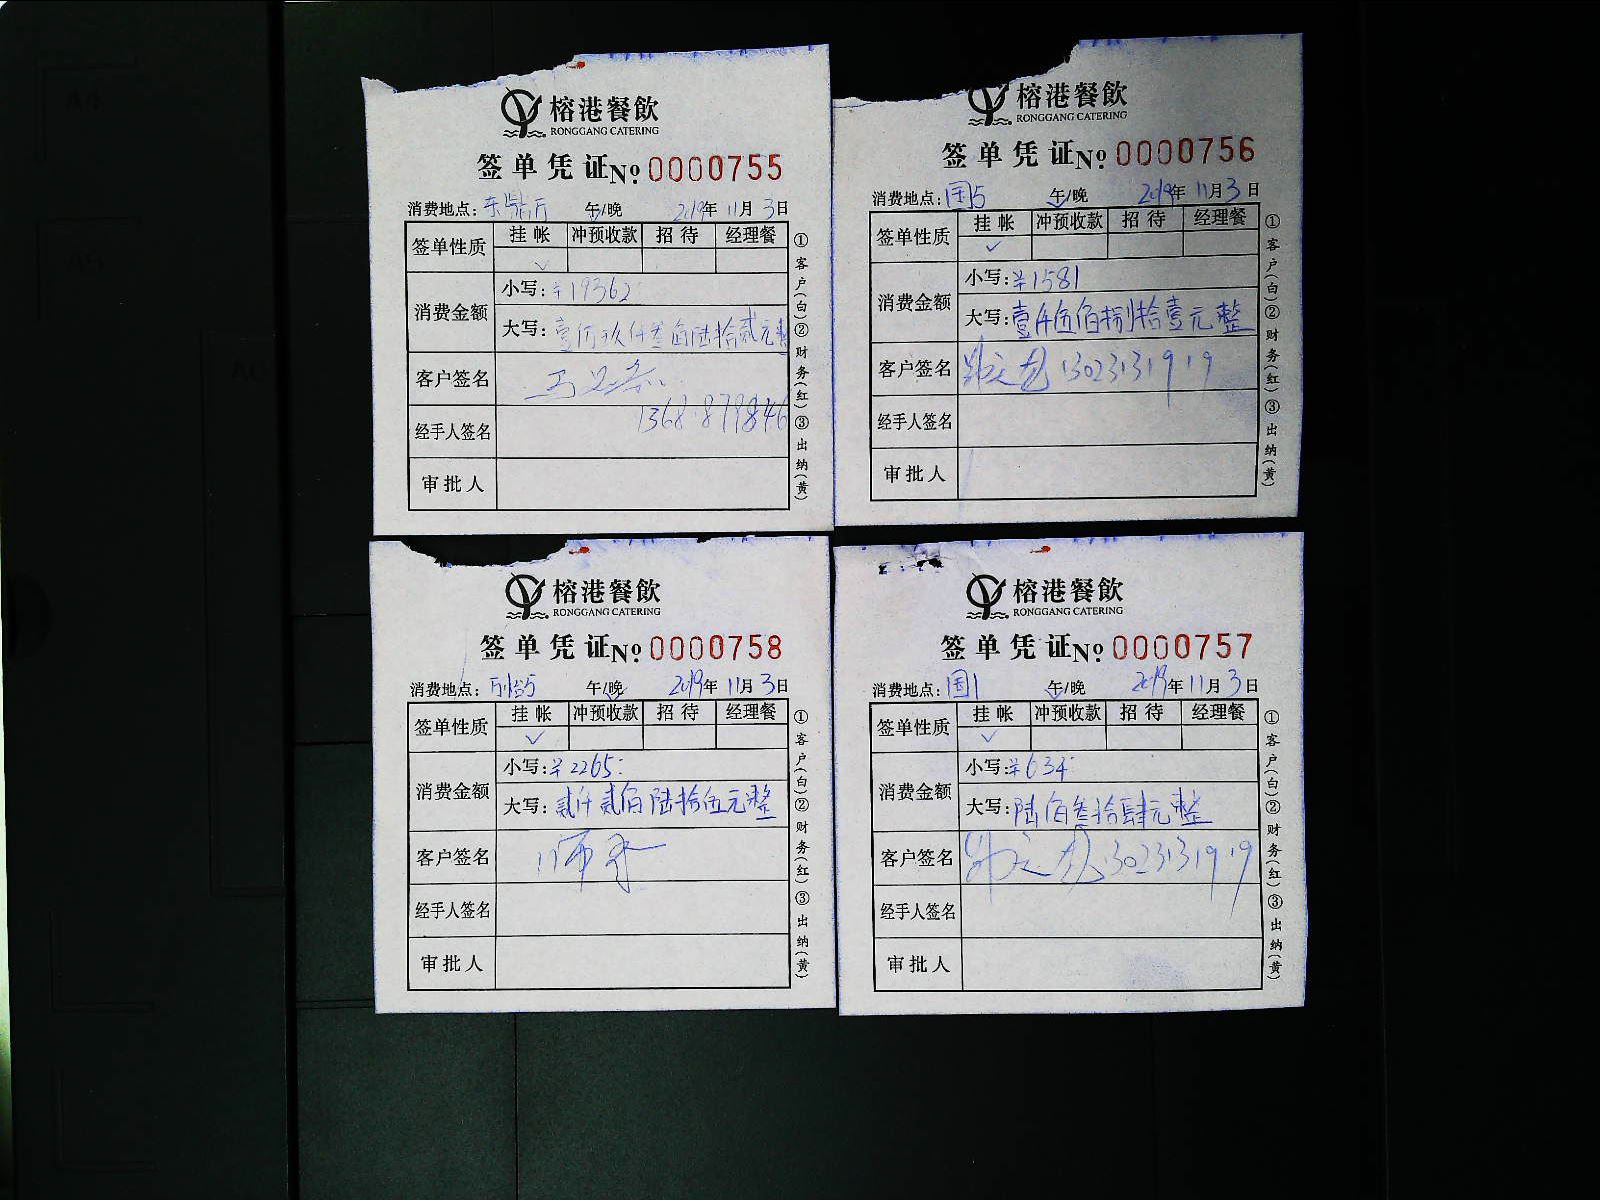 榕港餐飲
RONGGANG CATERING
签单凭证 No 0000755
消费地点: 午/晚 2019年 11月 3日
签单性质 挂帐 冲预收款 招待 经理餐
✓
消费金额 小写: ¥19362
大写: 壹万玖仟叁佰陆拾贰元整
客户签名
经手人签名
审批人
①客户(白)②财务(红)③出纳(黄)
榕港餐飲
RONGGANG CATERING
签单凭证 No 0000756
消费地点: 国5 午/晚 2019年 11月 3日
签单性质 挂帐 冲预收款 招待 经理餐
✓
消费金额 小写: ¥1581
大写: 壹仟伍佰捌拾壹元整
客户签名 13023131919
经手人签名
审批人
①客户(白)②财务(红)③出纳(黄)
榕港餐飲
RONGGANG CATERING
签单凭证 No 0000758
消费地点: 午/晚 2019年 11月 3日
签单性质 挂帐 冲预收款 招待 经理餐
✓
消费金额 小写: ¥2265
大写: 贰仟贰佰陆拾伍元整
客户签名
经手人签名
审批人
①客户(白)②财务(红)③出纳(黄)
榕港餐飲
RONGGANG CATERING
签单凭证 No 0000757
消费地点: 国1 午/晚 2019年 11月 3日
签单性质 挂帐 冲预收款 招待 经理餐
✓
消费金额 小写: ¥634
大写: 陆佰叁拾肆元整
客户签名 13023131919
经手人签名
审批人
①客户(白)②财务(红)③出纳(黄)